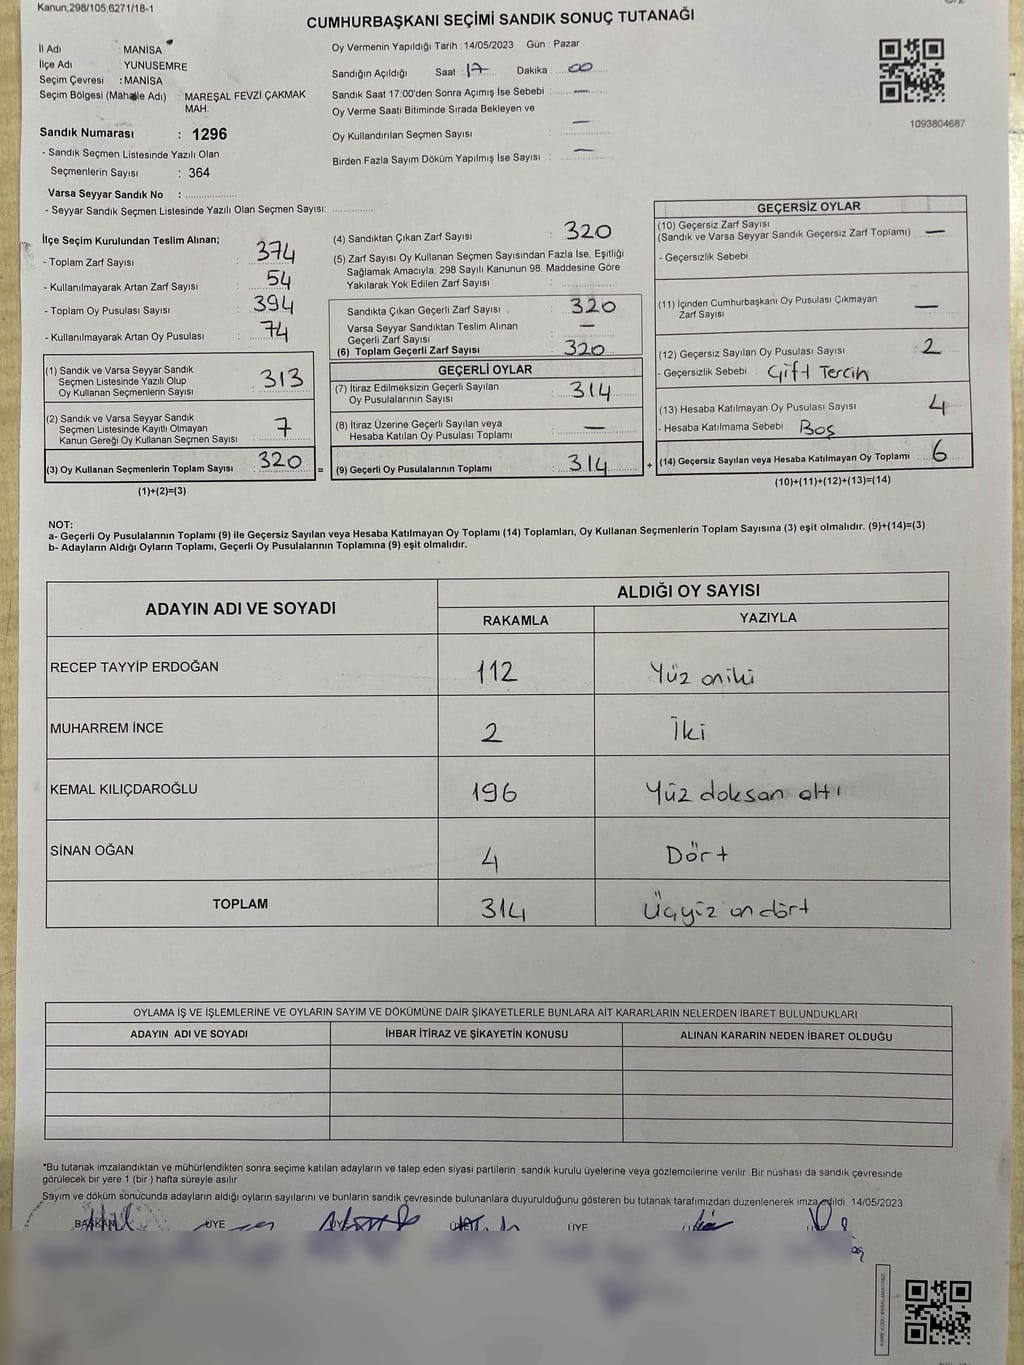 Kanun;298/105,6271/18-1
CUMHURBAŞKANI SEÇİMİ SANDIK SONUÇ TUTANAĞI
İl Adı : MANİSA
İlçe Adı : YUNUSEMRE
Seçim Çevresi : MANİSA
Seçim Bölgesi (Mahalle Adı) : MAREŞAL FEVZİ ÇAKMAK
MAH.
Sandık Numarası : 1296
- Sandık Seçmen Listesinde Yazılı Olan
Seçmenlerin Sayısı : 364
Varsa Seyyar Sandık No :
- Seyyar Sandık Seçmen Listesinde Yazılı Olan Seçmen Sayısı:
Oy Vermenin Yapıldığı Tarih : 14/05/2023 Gün : Pazar
Sandığın Açıldığı Saat 17 Dakika 00
Sandık Saat 17:00'den Sonra Açımış İse Sebebi : —
Oy Verme Saati Bitiminde Sırada Bekleyen ve
Oy Kullandırılan Seçmen Sayısı —
Birden Fazla Sayım Döküm Yapılmış İse Sayısı : —
1093804687
İlçe Seçim Kurulundan Teslim Alınan;
- Toplam Zarf Sayısı : 374
- Kullanılmayarak Artan Zarf Sayısı : 54
- Toplam Oy Pusulası Sayısı : 394
- Kullanılmayarak Artan Oy Pusulası : 74
(1) Sandık ve Varsa Seyyar Sandık
Seçmen Listesinde Yazılı Olup
Oy Kullanan Seçmenlerin Sayısı : 313
(2) Sandık ve Varsa Seyyar Sandık
Seçmen Listesinde Kayıtlı Olmayan
Kanun Gereği Oy Kullanan Seçmen Sayısı : 7
(3) Oy Kullanan Seçmenlerin Toplam Sayısı : 320 =
(1)+(2)=(3)
(4) Sandıktan Çıkan Zarf Sayısı : 320
(5) Zarf Sayısı Oy Kullanan Seçmen Sayısından Fazla İse, Eşitliği
Sağlamak Amacıyla; 298 Sayılı Kanunun 98. Maddesine Göre
Yakılarak Yok Edilen Zarf Sayısı :
Sandıkta Çıkan Geçerli Zarf Sayısı : 320
Varsa Seyyar Sandıktan Teslim Alınan
Geçerli Zarf Sayısı : —
(6) Toplam Geçerli Zarf Sayısı : 320
GEÇERLİ OYLAR
(7) İtiraz Edilmeksizin Geçerli Sayılan
Oy Pusulalarının Sayısı : 314
(8) İtiraz Üzerine Geçerli Sayılan veya
Hesaba Katılan Oy Pusulası Toplamı : —
(9) Geçerli Oy Pusulalarının Toplamı : 314 +
GEÇERSİZ OYLAR
(10) Geçersiz Zarf Sayısı
(Sandık ve Varsa Seyyar Sandık Geçersiz Zarf Toplamı) : —
- Geçersizlik Sebebi
(11) İçinden Cumhurbaşkanı Oy Pusulası Çıkmayan
Zarf Sayısı —
(12) Geçersiz Sayılan Oy Pusulası Sayısı : 2
- Geçersizlik Sebebi : Çift Tercih
(13) Hesaba Katılmayan Oy Pusulası Sayısı 4
- Hesaba Katılmama Sebebi : Boş
(14) Geçersiz Sayılan veya Hesaba Katılmayan Oy Toplamı 6
(10)+(11)+(12)+(13)=(14)
NOT:
a- Geçerli Oy Pusulalarının Toplamı (9) ile Geçersiz Sayılan veya Hesaba Katılmayan Oy Toplamı (14) Toplamları, Oy Kullanan Seçmenlerin Toplam Sayısına (3) eşit olmalıdır. (9)+(14)=(3)
b- Adayların Aldığı Oyların Toplamı, Geçerli Oy Pusulalarının Toplamına (9) eşit olmalıdır.
ADAYIN ADI VE SOYADI ALDIĞI OY SAYISI
RAKAMLA YAZIYLA
RECEP TAYYİP ERDOĞAN 112 Yüz oniki
MUHARREM İNCE 2 İki
KEMAL KILIÇDAROĞLU 196 Yüz doksan altı
SİNAN OĞAN 4 Dört
TOPLAM 314 Üçyüz on dört
OYLAMA İŞ VE İŞLEMLERİNE VE OYLARIN SAYIM VE DÖKÜMÜNE DAİR ŞİKAYETLERLE BUNLARA AİT KARARLARIN NELERDEN İBARET BULUNDUKLARI
ADAYIN ADI VE SOYADI İHBAR İTİRAZ VE ŞİKAYETİN KONUSU ALINAN KARARIN NEDEN İBARET OLDUĞU
*Bu tutanak imzalandıktan ve mühürlendikten sonra seçime katılan adayların ve talep eden siyasi partilerin sandık kurulu üyelerine veya gözlemcilerine verilir. Bir nüshası da sandık çevresinde
görülecek bir yere 1 (bir ) hafta süreyle asılır.
Sayım ve döküm sonucunda adayların aldığı oyların sayılarını ve bunların sandık çevresinde bulunanlara duyurulduğunu gösteren bu tutanak tarafımızdan düzenlenerek imza edildi. 14/05/2023
BAŞKAN ÜYE ÜYE ÜYE